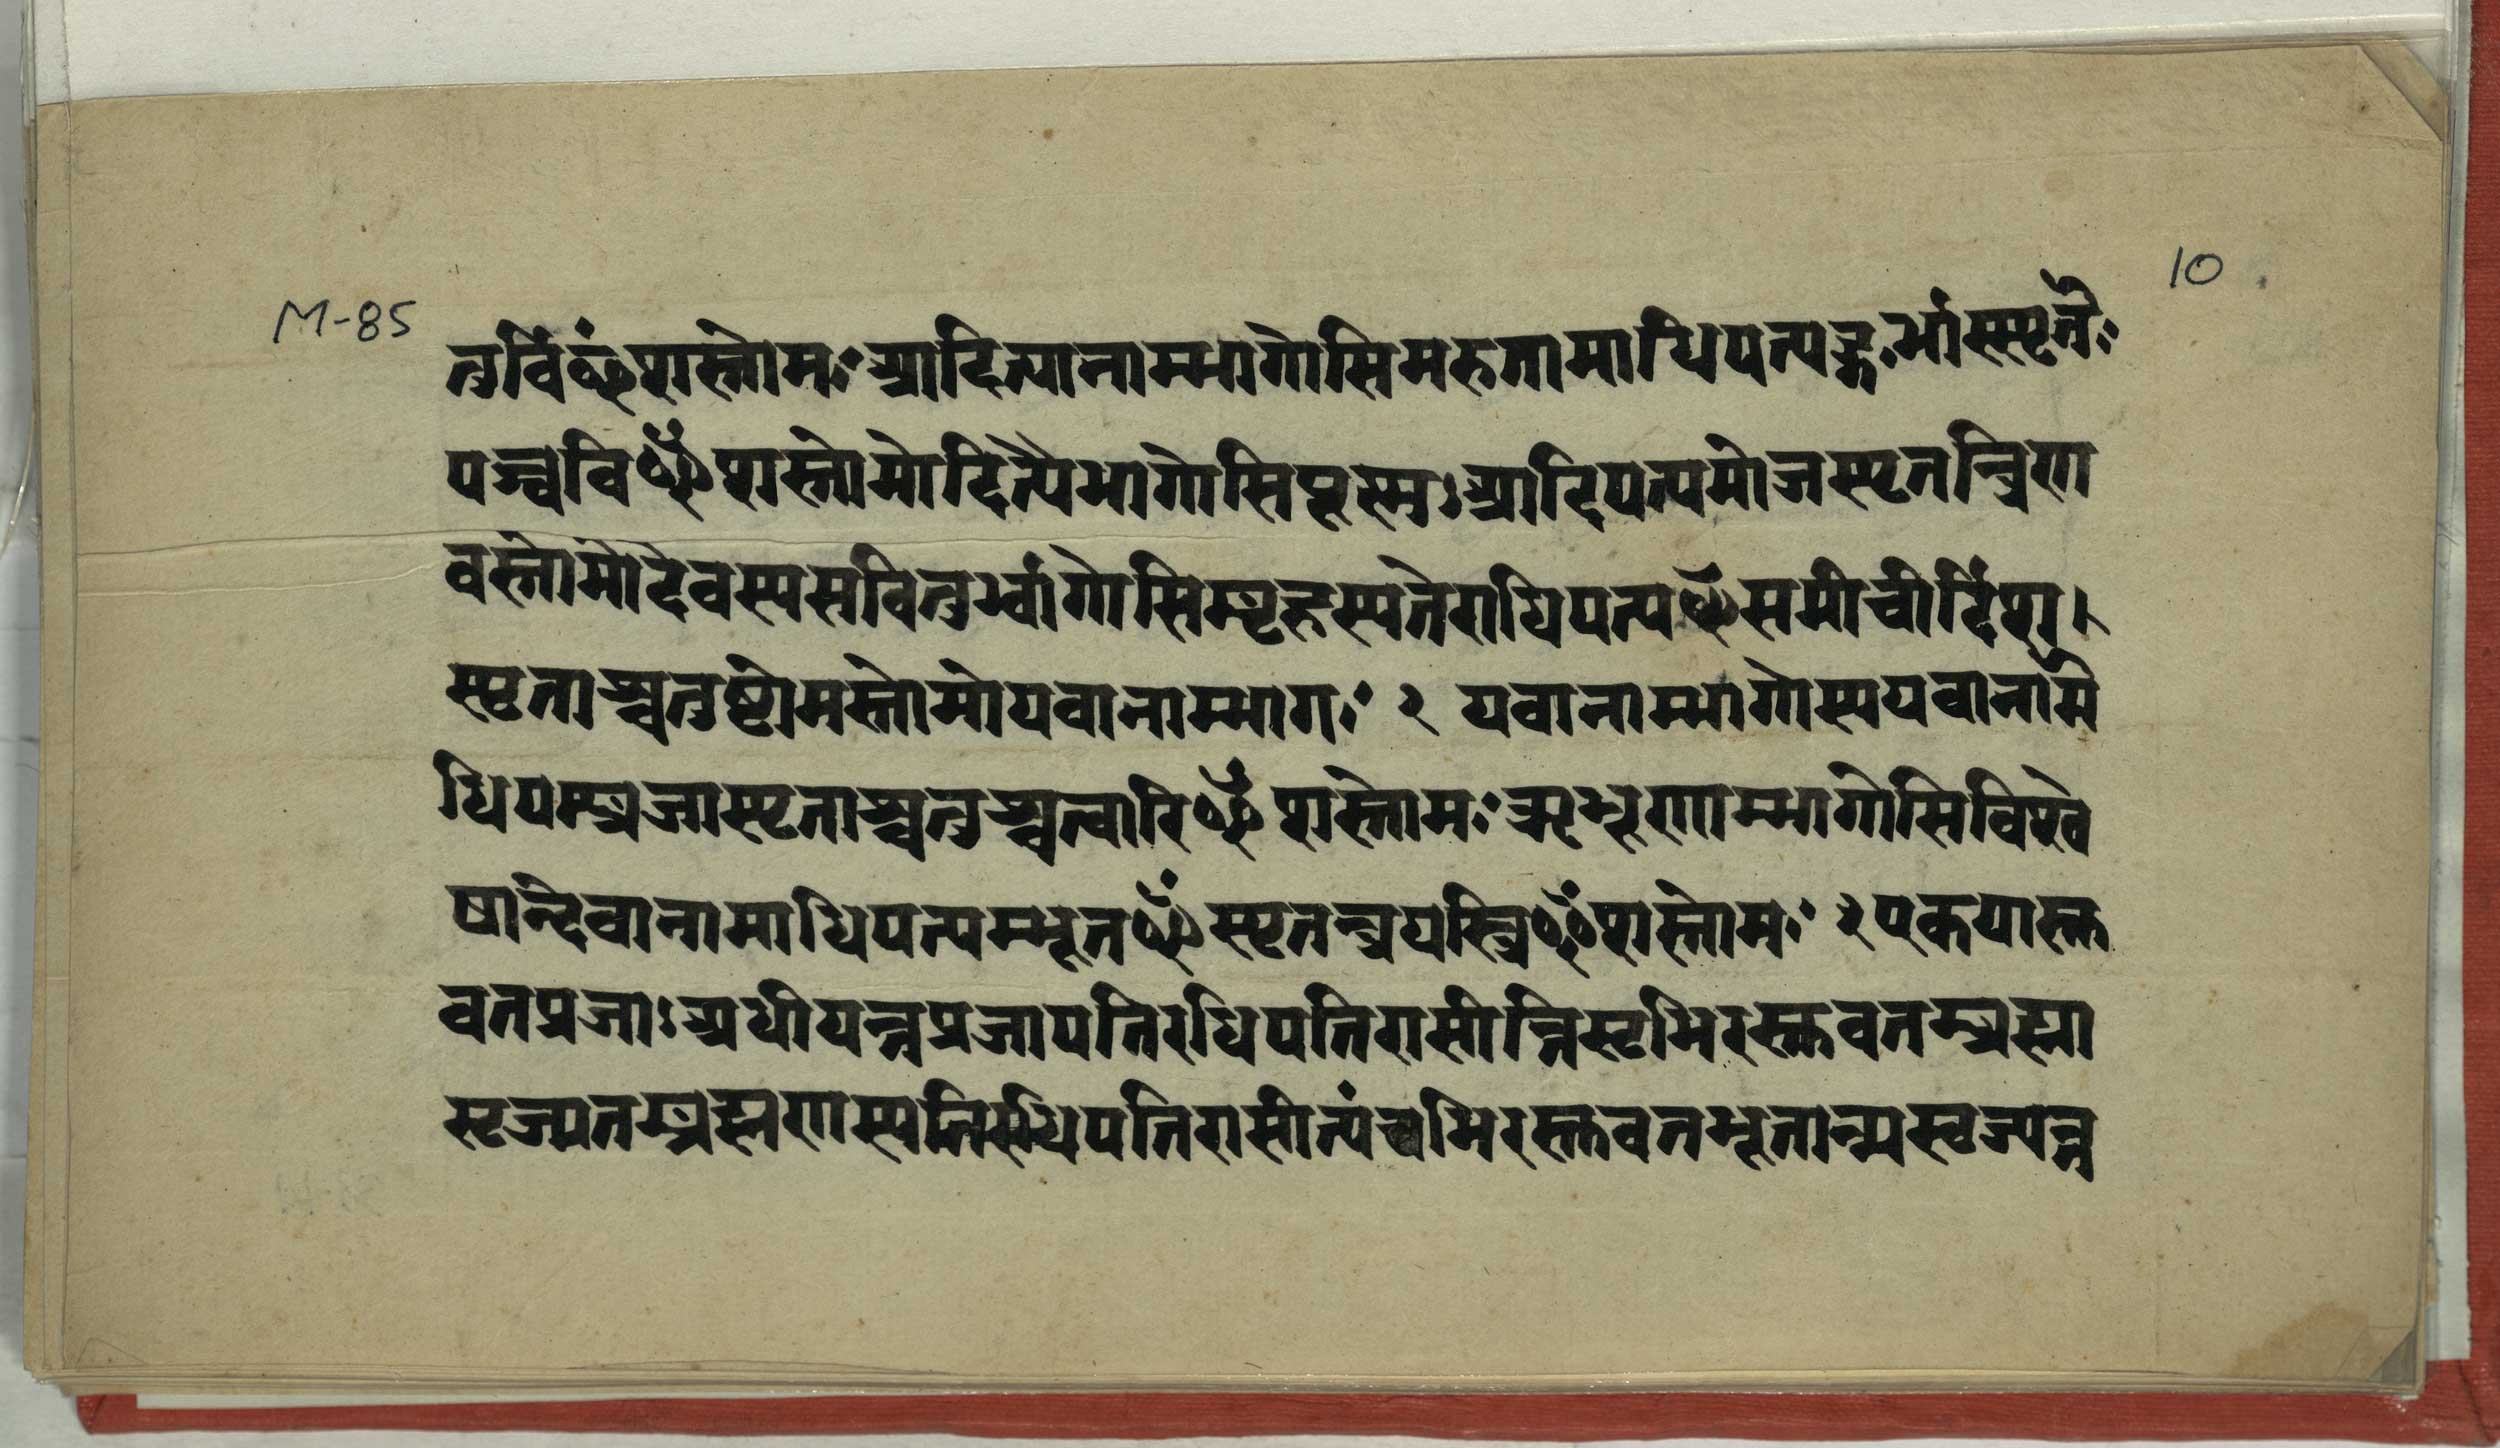 M-85
10
तुर्विंꣳशस्तोमः आदित्यानाम्भागोसिमरुतामाधिपत्यङ्गर्भांस्पृतंः
पञ्चविꣳशस्तोमोदित्यैभागोसिपूष्णः आदिपत्यमोजस्पृतन्त्रिणा
वस्तोमोदेवस्यसवितुर्ब्भागोसिबृहस्पतेराधिपत्यꣳसमीचीर्दिशः
स्पृताश्चतुष्टोमस्तोमोयवानाम्भागः २ यवानाम्भागोस्ययवानामे
धिपम्प्रजास्पृताश्चतुश्चत्वारिꣳशस्तोमः ऋभूणाम्भागोसिविश्वे
षान्देवानामाधिपत्यम्भूतꣳस्पृतन्त्रयस्त्रिꣳशस्तोमः २ एकयास्त
वतप्रजाः अधीयन्तप्रजापतिरधिपतिरासीत्तिसृभिरस्तवतम्ब्रह्मा
सृज्यतम्ब्रह्मणस्पतिरधिपतिरासीत्पंचभिरस्तवतभूतान्यसृज्यन्त